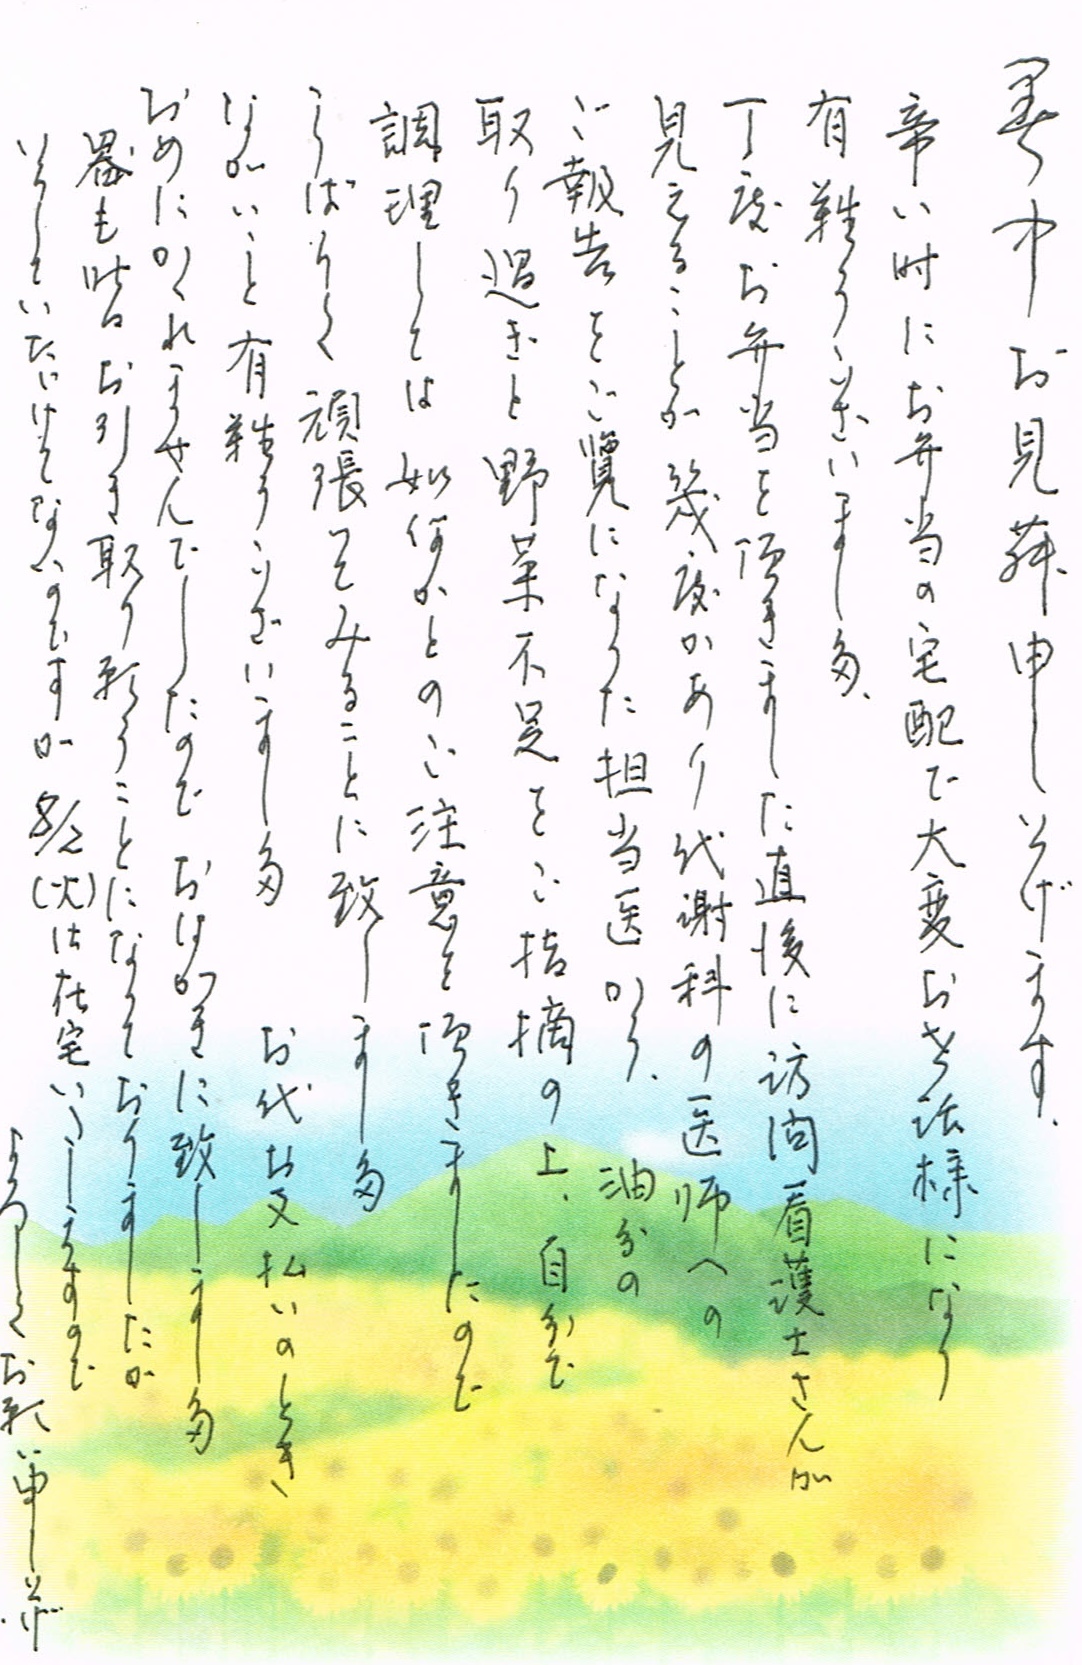 暑中お見舞申し上げます。
辛い時にお弁当の宅配で大変お世話様になり
有難うございました。
丁度お弁当を頂きました直後に訪問看護士さんが
見えることが幾度かあり代謝科の医師への
ご報告をご覧になった担当医から、油分の
取り過ぎと野菜不足をご指摘の上、自分で
調理しては如何かとのご注意を頂きましたので
しばらく頑張ってみることに致しました
ながいこと有難うございました
お代お支払いのとき
おめにかゝれませんでしたので おはがきに致しました
器も皆お引き取り願うことになっておりましたが
いらしていただけてないのですが 8/2(火)は在宅いたしますので
よろしくお願い申し上げ